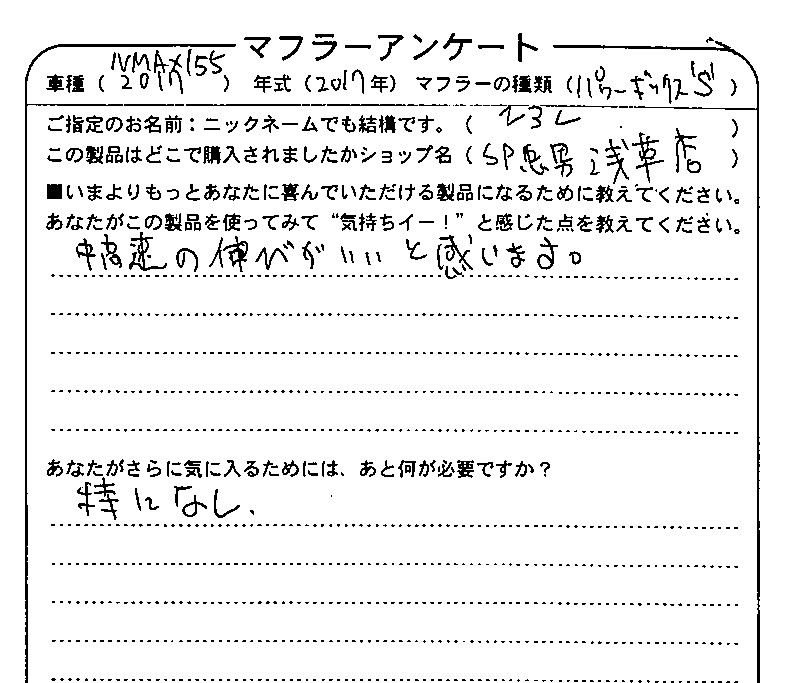 マフラーアンケート
車種（NMAX155 2017） 年式（2017年） マフラーの種類（パワーボックス"S"）
ご指定のお名前：ニックネームでも結構です。（ ）
この製品はどこで購入されましたかショップ名（SP忠男 浅草店）
■いまよりもっとあなたに喜んでいただける製品になるために教えてください。
あなたがこの製品を使ってみて“気持ちイー！”と感じた点を教えてください。
中高速の伸びがいいと感じます。
あなたがさらに気に入るためには、あと何が必要ですか？
特になし.